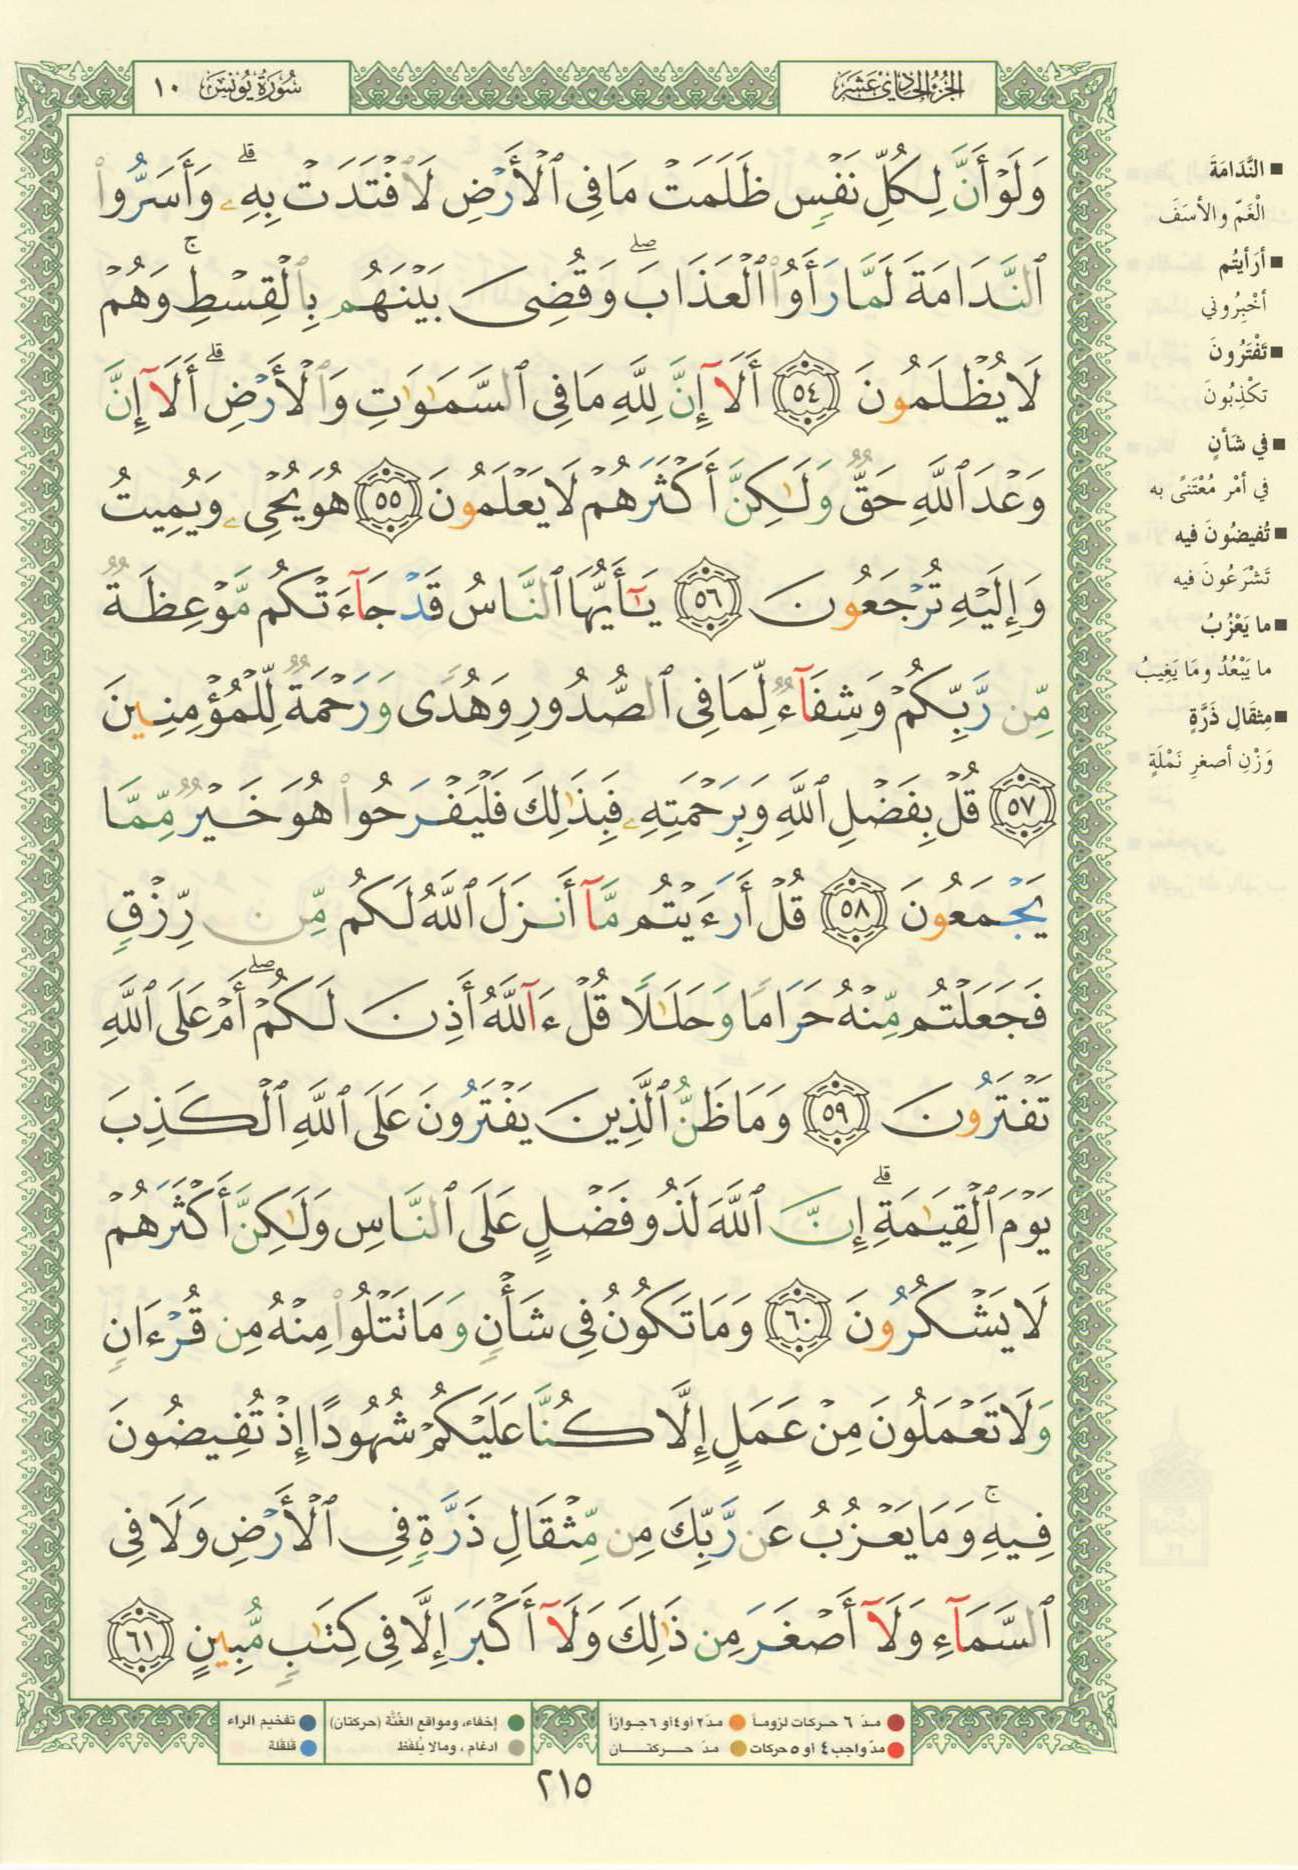 الجزء الحادي عشر
سورة يونس ١٠
وَلَوْ أَنَّ لِكُلِّ نَفْسٍ ظَلَمَتْ مَا فِي ٱلْأَرْضِ لَٱفْتَدَتْ بِهِۦ ۗ وَأَسَرُّوا۟
ٱلنَّدَامَةَ لَمَّا رَأَوُا۟ ٱلْعَذَابَ ۖ وَقُضِىَ بَيْنَهُم بِٱلْقِسْطِ ۚ وَهُمْ
لَا يُظْلَمُونَ ٥٤ أَلَآ إِنَّ لِلَّهِ مَا فِى ٱلسَّمَٰوَٰتِ وَٱلْأَرْضِ ۗ أَلَآ إِنَّ
وَعْدَ ٱللَّهِ حَقٌّ وَلَٰكِنَّ أَكْثَرَهُمْ لَا يَعْلَمُونَ ٥٥ هُوَ يُحْىِۦ وَيُمِيتُ
وَإِلَيْهِ تُرْجَعُونَ ٥٦ يَٰٓأَيُّهَا ٱلنَّاسُ قَدْ جَآءَتْكُم مَّوْعِظَةٌ
مِّن رَّبِّكُمْ وَشِفَآءٌ لِّمَا فِى ٱلصُّدُورِ وَهُدًى وَرَحْمَةٌ لِّلْمُؤْمِنِينَ
٥٧ قُلْ بِفَضْلِ ٱللَّهِ وَبِرَحْمَتِهِۦ فَبِذَٰلِكَ فَلْيَفْرَحُوا۟ هُوَ خَيْرٌ مِّمَّا
يَجْمَعُونَ ٥٨ قُلْ أَرَءَيْتُم مَّآ أَنزَلَ ٱللَّهُ لَكُم مِّن رِّزْقٍ
فَجَعَلْتُم مِّنْهُ حَرَامًا وَحَلَٰلًا قُلْ ءَآللَّهُ أَذِنَ لَكُمْ ۖ أَمْ عَلَى ٱللَّهِ
تَفْتَرُونَ ٥٩ وَمَا ظَنُّ ٱلَّذِينَ يَفْتَرُونَ عَلَى ٱللَّهِ ٱلْكَذِبَ
يَوْمَ ٱلْقِيَٰمَةِ ۗ إِنَّ ٱللَّهَ لَذُو فَضْلٍ عَلَى ٱلنَّاسِ وَلَٰكِنَّ أَكْثَرَهُمْ
لَا يَشْكُرُونَ ٦٠ وَمَا تَكُونُ فِى شَأْنٍ وَمَا تَتْلُوا۟ مِنْهُ مِن قُرْءَانٍ
وَلَا تَعْمَلُونَ مِنْ عَمَلٍ إِلَّا كُنَّا عَلَيْكُمْ شُهُودًا إِذْ تُفِيضُونَ
فِيهِ ۚ وَمَا يَعْزُبُ عَن رَّبِّكَ مِن مِّثْقَالِ ذَرَّةٍ فِى ٱلْأَرْضِ وَلَا فِى
ٱلسَّمَآءِ وَلَآ أَصْغَرَ مِن ذَٰلِكَ وَلَآ أَكْبَرَ إِلَّا فِى كِتَٰبٍ مُّبِينٍ ٦١
■ النَّدَامَةَ
الْغَمّ والأسَفَ
■ أرَأيتُم
أخْبِرُوني
■ تَفْتَرُونَ
تكْذِبُونَ
■ في شَأنٍ
في أمْر مُعْتَنًى به
■ تُفِيضُونَ فيه
تَشْرَعُونَ فيه
■ ما يَعْزُبُ
ما يَبْعُدُ ومَا يَغِيبُ
■ مِثقَالِ ذَرَّةٍ
وَزْنِ أصغرِ نَمْلَةٍ
مدّ ٦ حركات لزوماً
مدّ ٢ أو ٤ أو ٦ جوازاً
إخفاء، ومواقع الغُنَّة (حركتان)
تفخيم الراء
مدّ واجب ٤ أو ٥ حركات
مدّ حركتان
ادغام، ومالا يُلفَظ
قلقلة
٢١٥